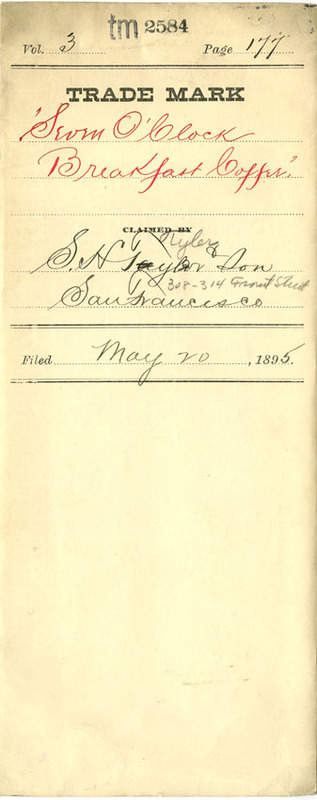 tm 2584
Vol. 3 Page 177
TRADE MARK
"Seven O'Clock
Breakfast Coffee"
CLAIMED BY
Tyler
S. H. Taylor & Son
308-314 Front Street
San Francisco
Filed May 20, 1895.